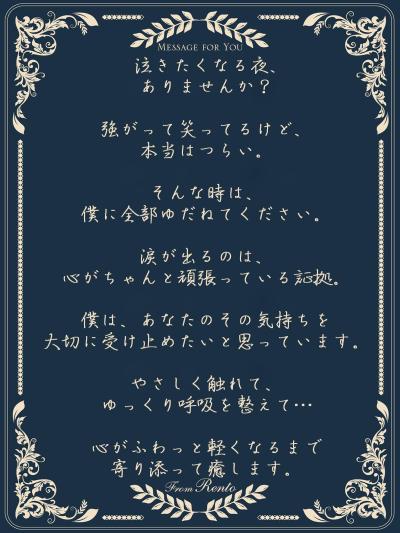 MESSAGE FOR YOU
泣きたくなる夜、
ありませんか？
強がって笑ってるけど、
本当はつらい。
そんな時は、
僕に全部ゆだねてください。
涙が出るのは、
心がちゃんと頑張っている証拠。
僕は、あなたのその気持ちを
大切に受け止めたいと思っています。
やさしく触れて、
ゆっくり呼吸を整えて…
心がふわっと軽くなるまで
寄り添って癒します。
From Rento